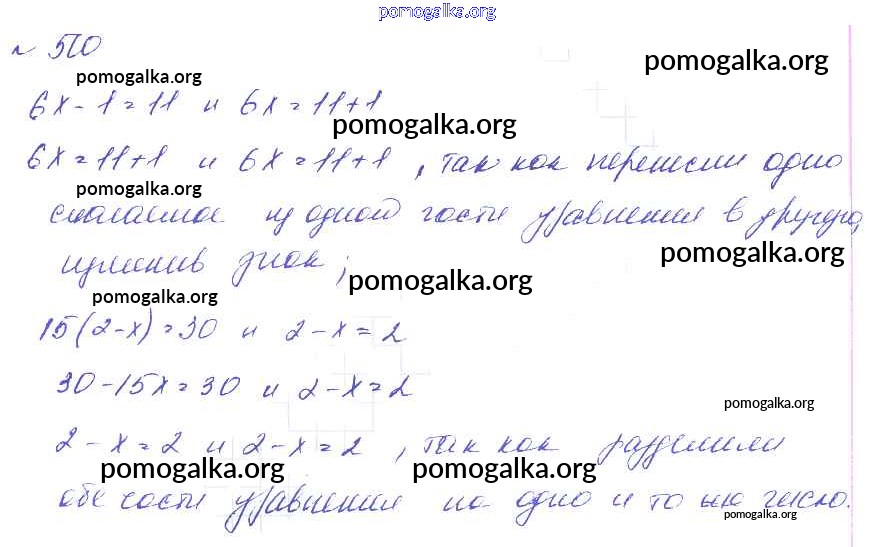 pomogalka.org
№ 510
pomogalka.org
pomogalka.org
6x - 1 = 11 и 6x = 11+1
pomogalka.org
6x = 11+1 и 6x = 11+1, так как перенесли одно
pomogalka.org
слагаемое из одной части уравнения в другую,
pomogalka.org
изменив знак;
pomogalka.org
pomogalka.org
15(2-x) = 30 и 2-x = 2
30-15x = 30 и 2-x = 2
pomogalka.org
2-x = 2 и 2-x = 2, так как разделили
pomogalka.org pomogalka.org
обе части уравнения на одно и то же число.
pomogalka.org